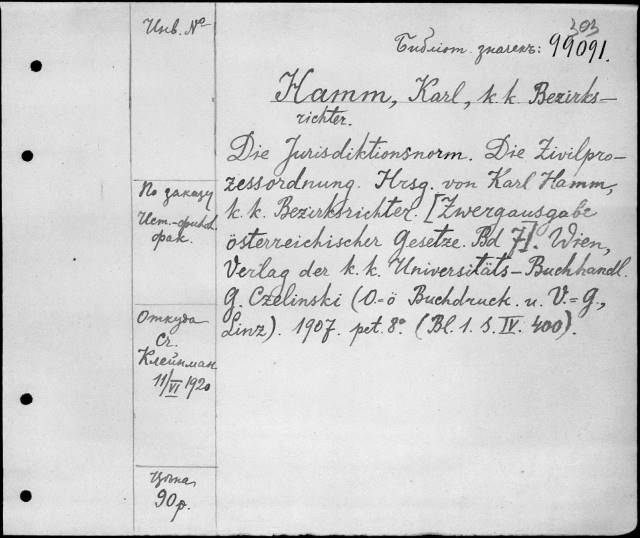 Инв. №
303
Библіот. значекъ: 99091.
Hamm, Karl, k. k. Bezirks-
richter.
Die Jurisdiktionsnorm. Die Zivilpro-
zessordnung. Hrsg. von Karl Hamm,
k. k. Bezirksrichter. [Zwergausgabe
österreichischer Gesetze. Bd I]. Wien,
Verlag der k. k. Universitäts-Buchhandl.
G. Czelinski (O.-ö Buchdruck. u. V.-g,
Linz). 1907. pet. 8°. (Bl. 1. S. IV. 400).
По заказу
Ист.-филол.
фак.
Откуда
Сг.
Клейнман
11/VI 1920
Цѣна
90 р.